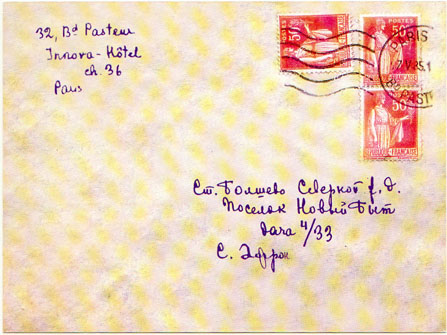 32, Bd Pasteur
Innova-Hôtel
ch. 36
Paris
POSTES
50c
FRANÇAISE
50c
50c
FRANÇAISE
PARIS
Bd PAST
Ст. Болшево Северной ж. д.
Поселок Новый Быт
дача 4/33
С. Эфрон